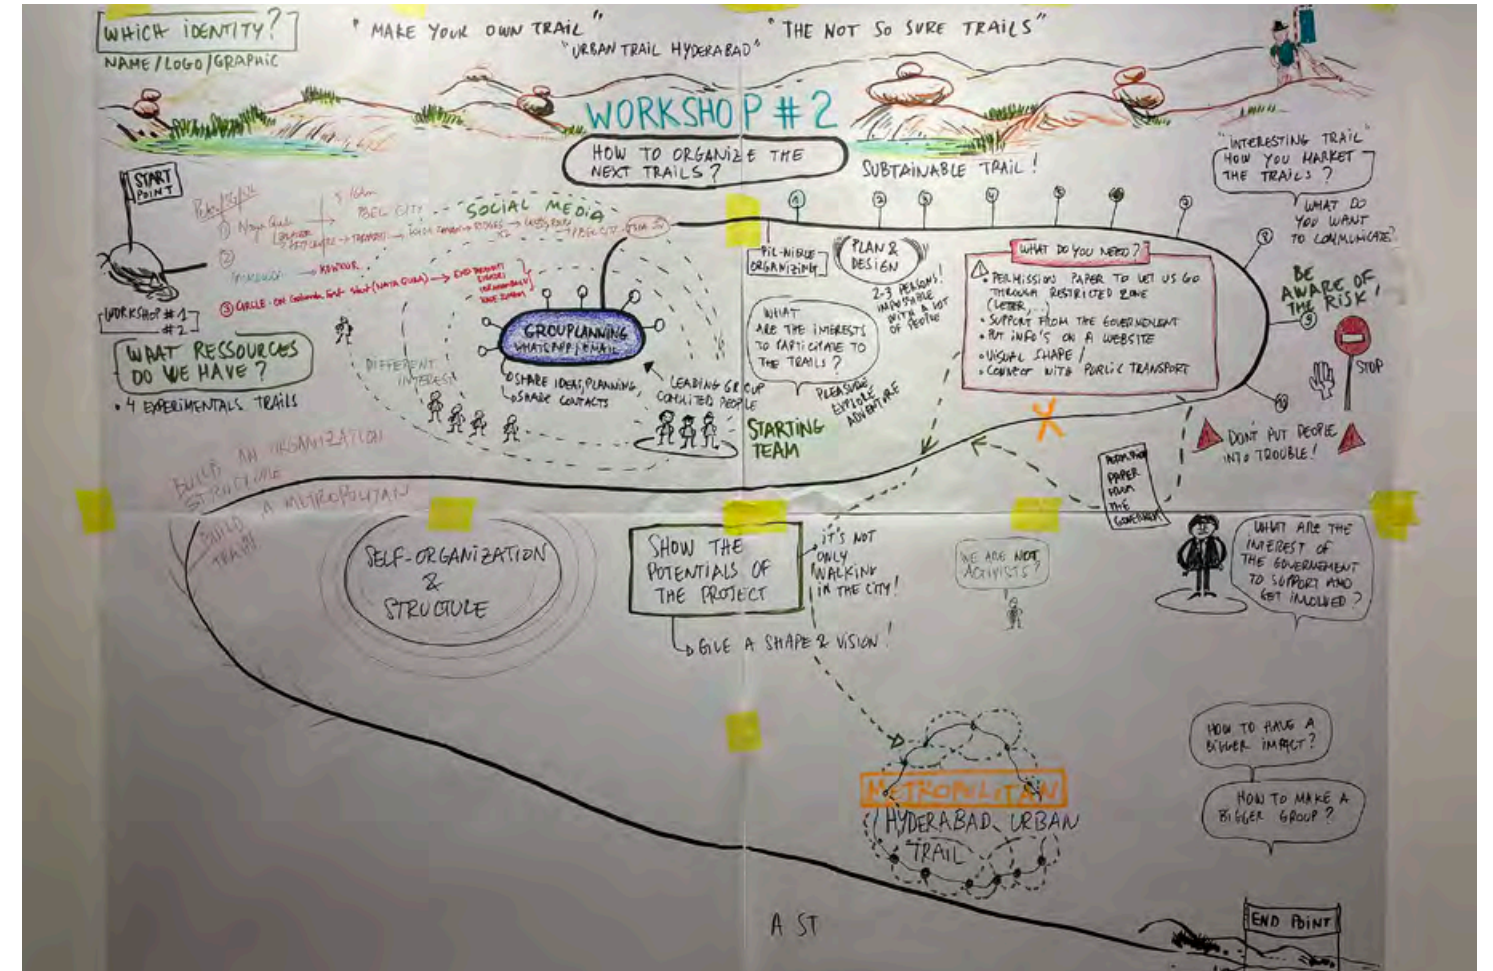 WHICH IDENTITY?
NAME/LOGO/GRAPHIC
"MAKE YOUR OWN TRAIL"
"URBAN TRAIL HYDERABAD"
"THE NOT SO SURE TRAILS"
WORKSHOP #2
HOW TO ORGANIZE THE
NEXT TRAILS?
SUBTAINABLE TRAIL!
"INTERESTING TRAIL"
HOW YOU MARKET
THE TRAILS?
WHAT DO
YOU WANT
TO COMMUNICATE?
START
POINT
WORKSHOP #1
#2
WHAT RESSOURCES
DO WE HAVE?
• 4 EXPERIMENTALS TRAILS
① Naya Qila
PBEL CITY
②
③ CIRCLE - ON Golconda Fort start (NAYA QUILA)
SOCIAL MEDIA
GROUPLANNING
WHATSAPP/EMAIL
SHARE IDEAS, PLANNING,
SHARE CONTACTS
DIFFERENT
INTEREST
LEADING GROUP
COMMITED PEOPLE
STARTING
TEAM
PIC-NIQUE
ORGANIZING
PLAN &
DESIGN
2-3 PERSONS!
IMPOSSIBLE
WITH A LOT
OF PEOPLE
WHAT
ARE THE INTERESTS
TO PARTICIPATE TO
THE TRAILS?
PLEASURE
EXPLORE
ADVENTURE
1
2
3
4
7
8
9
10
WHAT DO YOU NEED?
• PERMISSION PAPER TO LET US GO
THROUGH RESTRICTED ZONE
(LETTER, ...)
• SUPPORT FROM THE GOVERNEMENT
• PUT INFO'S ON A WEBSITE
• VISUAL SHAPE /
• CONNECT WITH PUBLIC TRANSPORT
BE
AWARE OF
THE RISK!
STOP
DON'T PUT PEOPLE
INTO TROUBLE!
PAPER
FROM
THE
GOVERMENT
BUILD AN ORGANIZATION
STRUCTURE
BUILD A METROPOLITAN
TRAIL
SELF-ORGANIZATION
&
STRUCTURE
SHOW THE
POTENTIALS OF
THE PROJECT
IT'S NOT
ONLY
WALKING
IN THE CITY!
GIVE A SHAPE & VISION!
WE ARE NOT
ACTIVISTS?
WHAT ARE THE
INTEREST OF
THE GOVERNEMENT
TO SUPPORT AND
GET INVOLVED?
METROPOLITAN
HYDERABAD URBAN
TRAIL
HOW TO HAVE A
BIGGER IMPACT?
HOW TO MAKE A
BIGGER GROUP?
A ST
END POINT